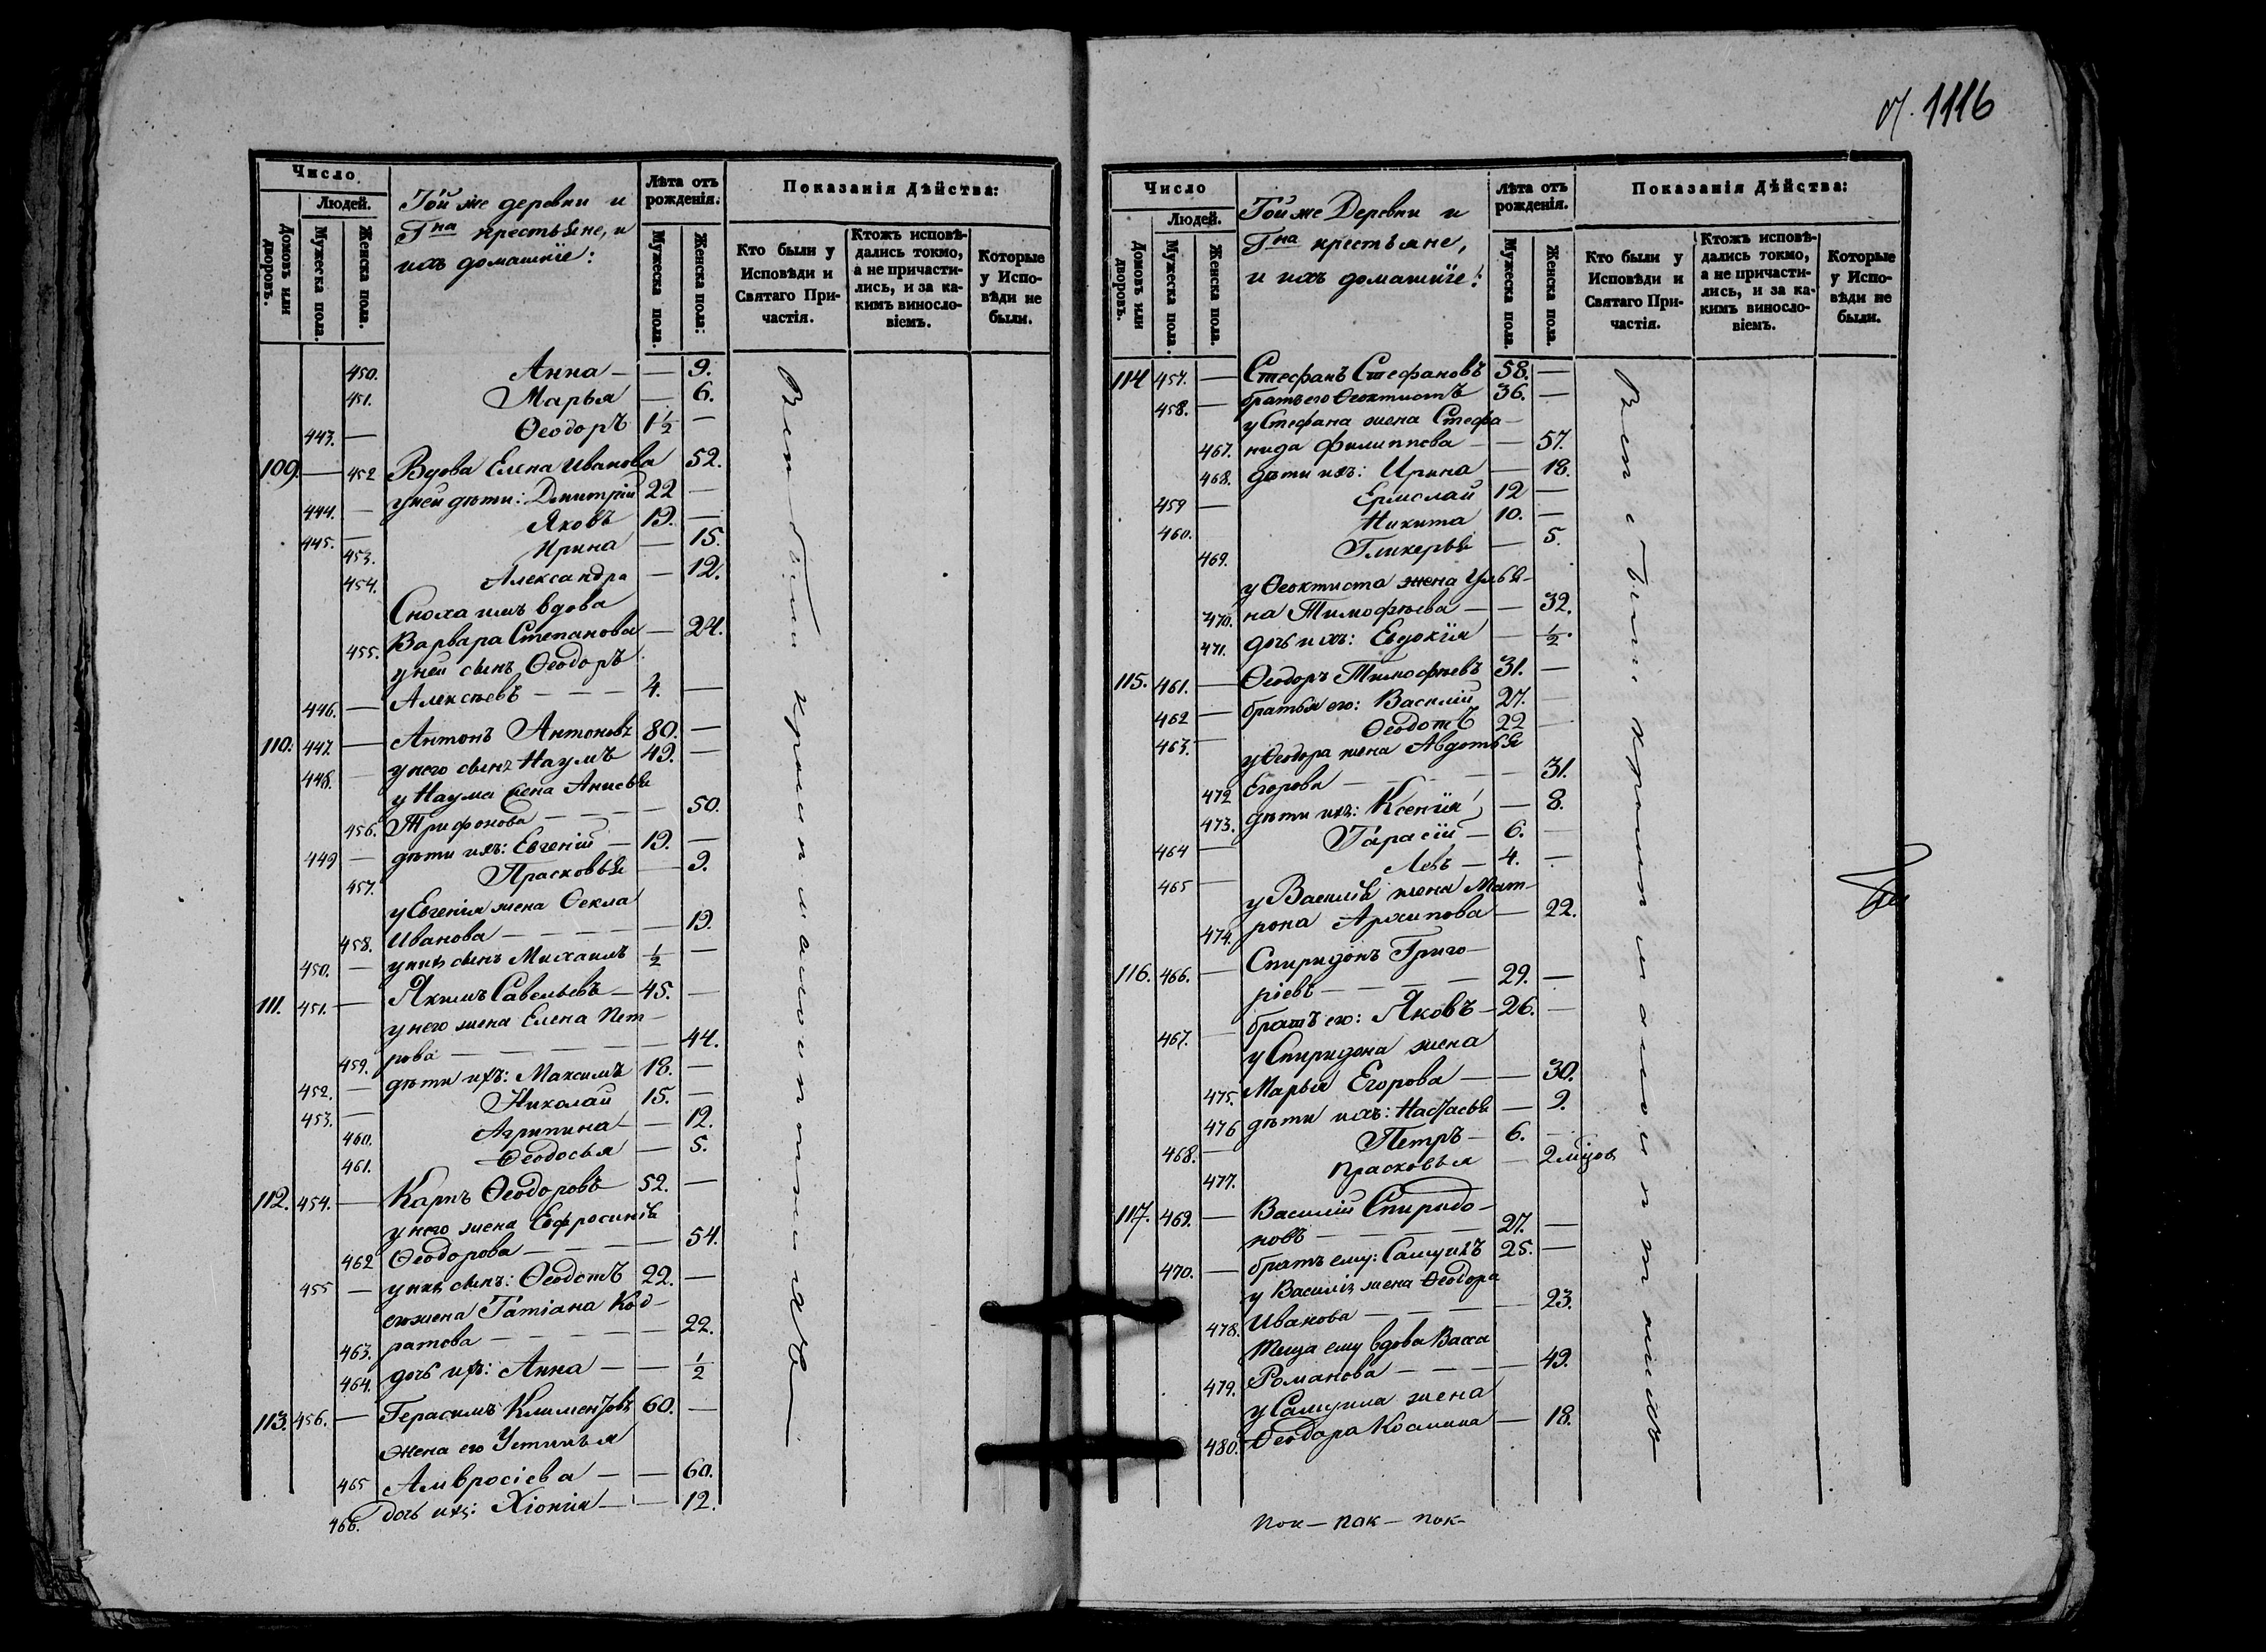 л. 1116
Число
Людей.
Домовъ или дворовъ.
Мужеска пола.
Женска пола.
Той же деревни и
Гна крестьяне, и
ихъ домашніе:
Лѣта отъ рожденія.
Мужеска пола.
Женска пола.
Показанія Дѣйства:
Кто были у Исповѣди и Святаго Причастія.
Ктожъ исповѣдались токмо, а не причастились, и за какимъ винословіемъ.
Которые у Исповѣди не были.
450. Анна — — 9.
451. Марья — 6.
443. — Ѳеодоръ 1 1/2 —
109. — 452 Вдова Елена Иванова 52.
444. — у ней дѣти: Димитрій 22 —
445. — Яковъ 19. —
453. Ирина — 15.
454. Александра — 12.
Сноха ихъ вдова
455. Варвара Степанова — 24.
у ней сынъ Ѳеодоръ
446. — Алексѣевъ — — — 4. —
110. 447 — Антонъ Антоновъ 80. —
448. — у него сынъ Наумъ 49. —
у Наума жена Анисья
456. Трифонова — — — — 50.
449 — дѣти ихъ: Евгеній — 19. —
457. Прасковья — 9.
у Евгенія жена Ѳекла
458. Иванова — — — — — 19.
450. — у нихъ сынъ Михаилъ 1/2 —
111. 451. — Якимъ Савельевъ — 45. —
у него жена Елена Пет-
459. рова — — — — — 44.
452. — дѣти ихъ: Максимъ 18. —
453. — Николай 15. —
460. Агрипина — — 12.
461. Ѳеодосья — 5.
112. 454. — Карпъ Ѳеодоровъ 52. —
у него жена Евфросинія
462 Ѳеодорова — — — — 54.
455 — у нихъ сынъ: Ѳеодотъ 22. —
его жена Татіана Код-
463. ратова — — — — — 22.
464. дочь ихъ: Анна — — 1/2
113. 456. — Герасимъ Климентовъ 60. —
жена его Устинья
465 Амвросіева — — 60.
466. дочь ихъ: Хіонія — — 12.
Вси были кромѣ малолѣтныхъ
Число
Людей.
Домовъ или дворовъ.
Мужеска пола.
Женска пола.
Той же Деревни и
Гна крестьяне,
и ихъ домашніе:
Лѣта отъ рожденія.
Мужеска пола.
Женска пола.
Показанія Дѣйства:
Кто были у Исповѣди и Святаго Причастія.
Ктожъ исповѣдались токмо, а не причастились, и за какимъ винословіемъ.
Которые у Исповѣди не были.
114 457. — Стефанъ Стефановъ 58. —
458. — братъ его Ѳеоктистъ 36. —
у Стефана жена Стефа-
467. нида Филиппова — — 57.
468. дѣти ихъ: Ирина — 18.
459 — Ермолай 12 —
460. Никита 10. —
469. Гликерья — 5.
у Ѳеоктиста жена Улья-
470. на Тимофѣева — — 32.
471. дочь ихъ: Евдокія — 1/2.
115. 461. — Ѳеодоръ Тимофѣевъ 31. —
462 — братья его: Василій 27. —
463. — Ѳеодотъ 22 —
у Ѳеодора жена Авдотья
472 Егорова — — — — — 31.
473. дѣти ихъ: Ксенія — 8.
464 — Тарасій — 6. —
465 — Левъ — 4. —
у Василія жена Мат-
474. рона Архипова — 22.
Спиридонъ Григо-
116. 466. — ріевъ — — — — 29. —
467. — братъ его: Яковъ — 26. —
у Спиридона жена
475. Марья Егорова — — 30.
476 дѣти ихъ: Настасья — 9.
468. — Петръ — 6. —
477. Прасковья — 2 мцов
117. 469. — Василій Спиридо-
новъ — — — — 27. —
470. — братъ ему: Самуилъ 25. —
у Василія жена Ѳеодора
478. Иванова — — — — 23.
теща ему вдова Васса
479. Романова — — — — 49.
у Самуила жена
480. Ѳеодора Космина — 18.
Вси были кромѣ малолѣтнихъ